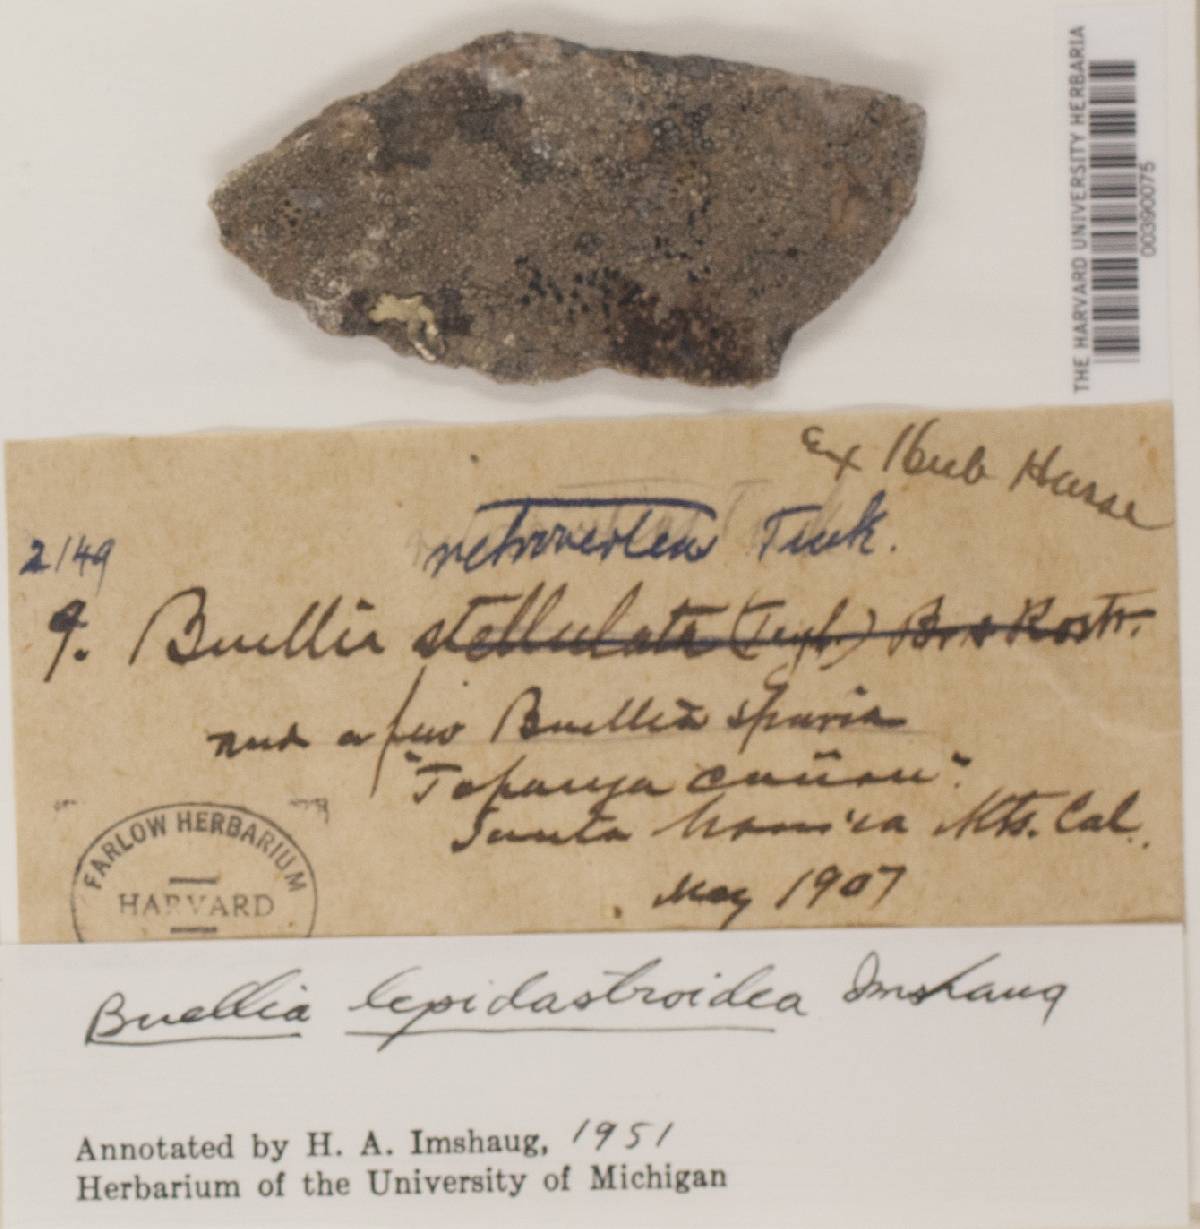 THE HARVARD UNIVERSITY HERBARIA
00390075
Ex Herb Hasse
retrovertens Tuck.
2149
9. Buellia stellulata (Tayl.) Br & Rostr.
and a few Buellia spuria
"Topanga cañon".
Santa Monica Mts. Cal.
May 1907
FARLOW HERBARIUM
HARVARD
Buellia lepidastroidea Imshaug
Annotated by H. A. Imshaug, 1951
Herbarium of the University of Michigan